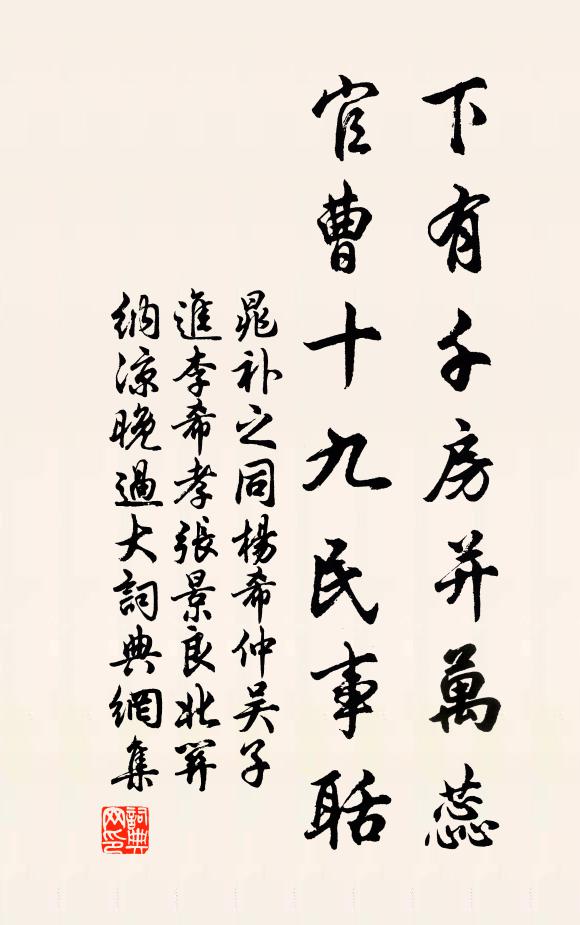 下有千房并萬蕊
官曹十九民事聒
晁补之同楊希仲吴子
進李希孝張景良北羿
納凉晚過大詞典網集
詞典網印